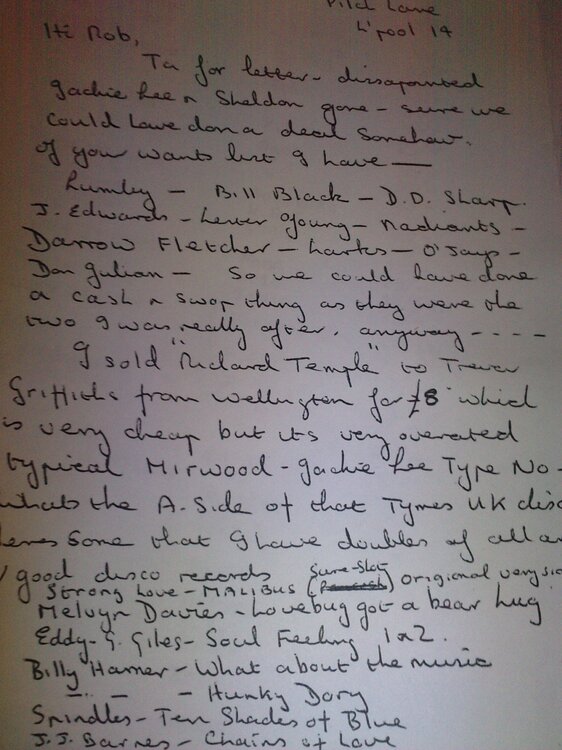 Pilch Lane
L'pool 14
Hi Rob,
Ta for letter - dissapointed
Jackie Lee n Sheldon gone - seure we
could have don a deal somehow.
Of your wants list I have —
Lumley - Bill Black - D.D. Sharp.
J. Edwards - Lester Young - Radiants -
Darrow Fletcher - Larks - O'Jays -
Don Julian - So we could have done
a cash n swop thing as they were the
two I was really after, anyway - - - -
I sold "Richard Temple" to Trevor
Griffiths from Wellington for £8 which
is very cheap but its very overated
typical Mirwood - Jackie Lee Type No -
whats the A. Side of that Tymes UK disc
heres Some that I have doubles of all are
good disco records
Strong Love - MALIBUS (Sure-Shot) Original version
Melvyn Davies - Lovebug got a bear hug
Eddy. G. Giles - Soul Feeling 1n2.
Billy Hamer - What about the music
-. - - Hunky Dory
Spindles - Ten Shades of Blue
J.J. Barnes - Chains of Love